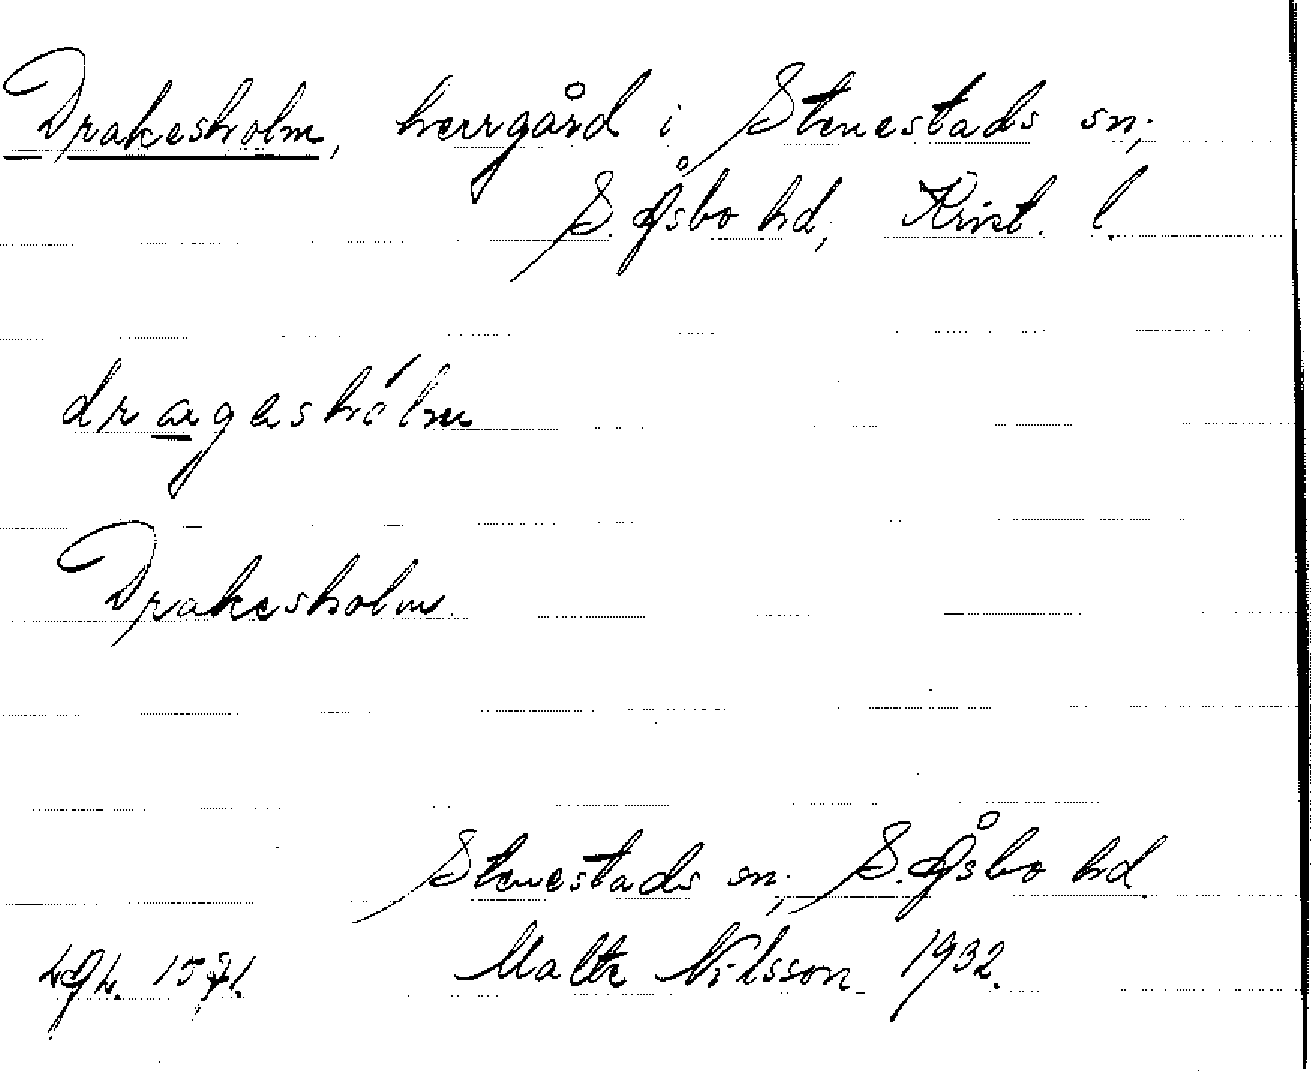 Drakesholm, herrgård i Stenestads sn;
S. Åsbo hd, Krist. l.
dragashólm
Drakesholm.
Stenestads sn; S. Åsbo hd
Malte Nilsson 1932.